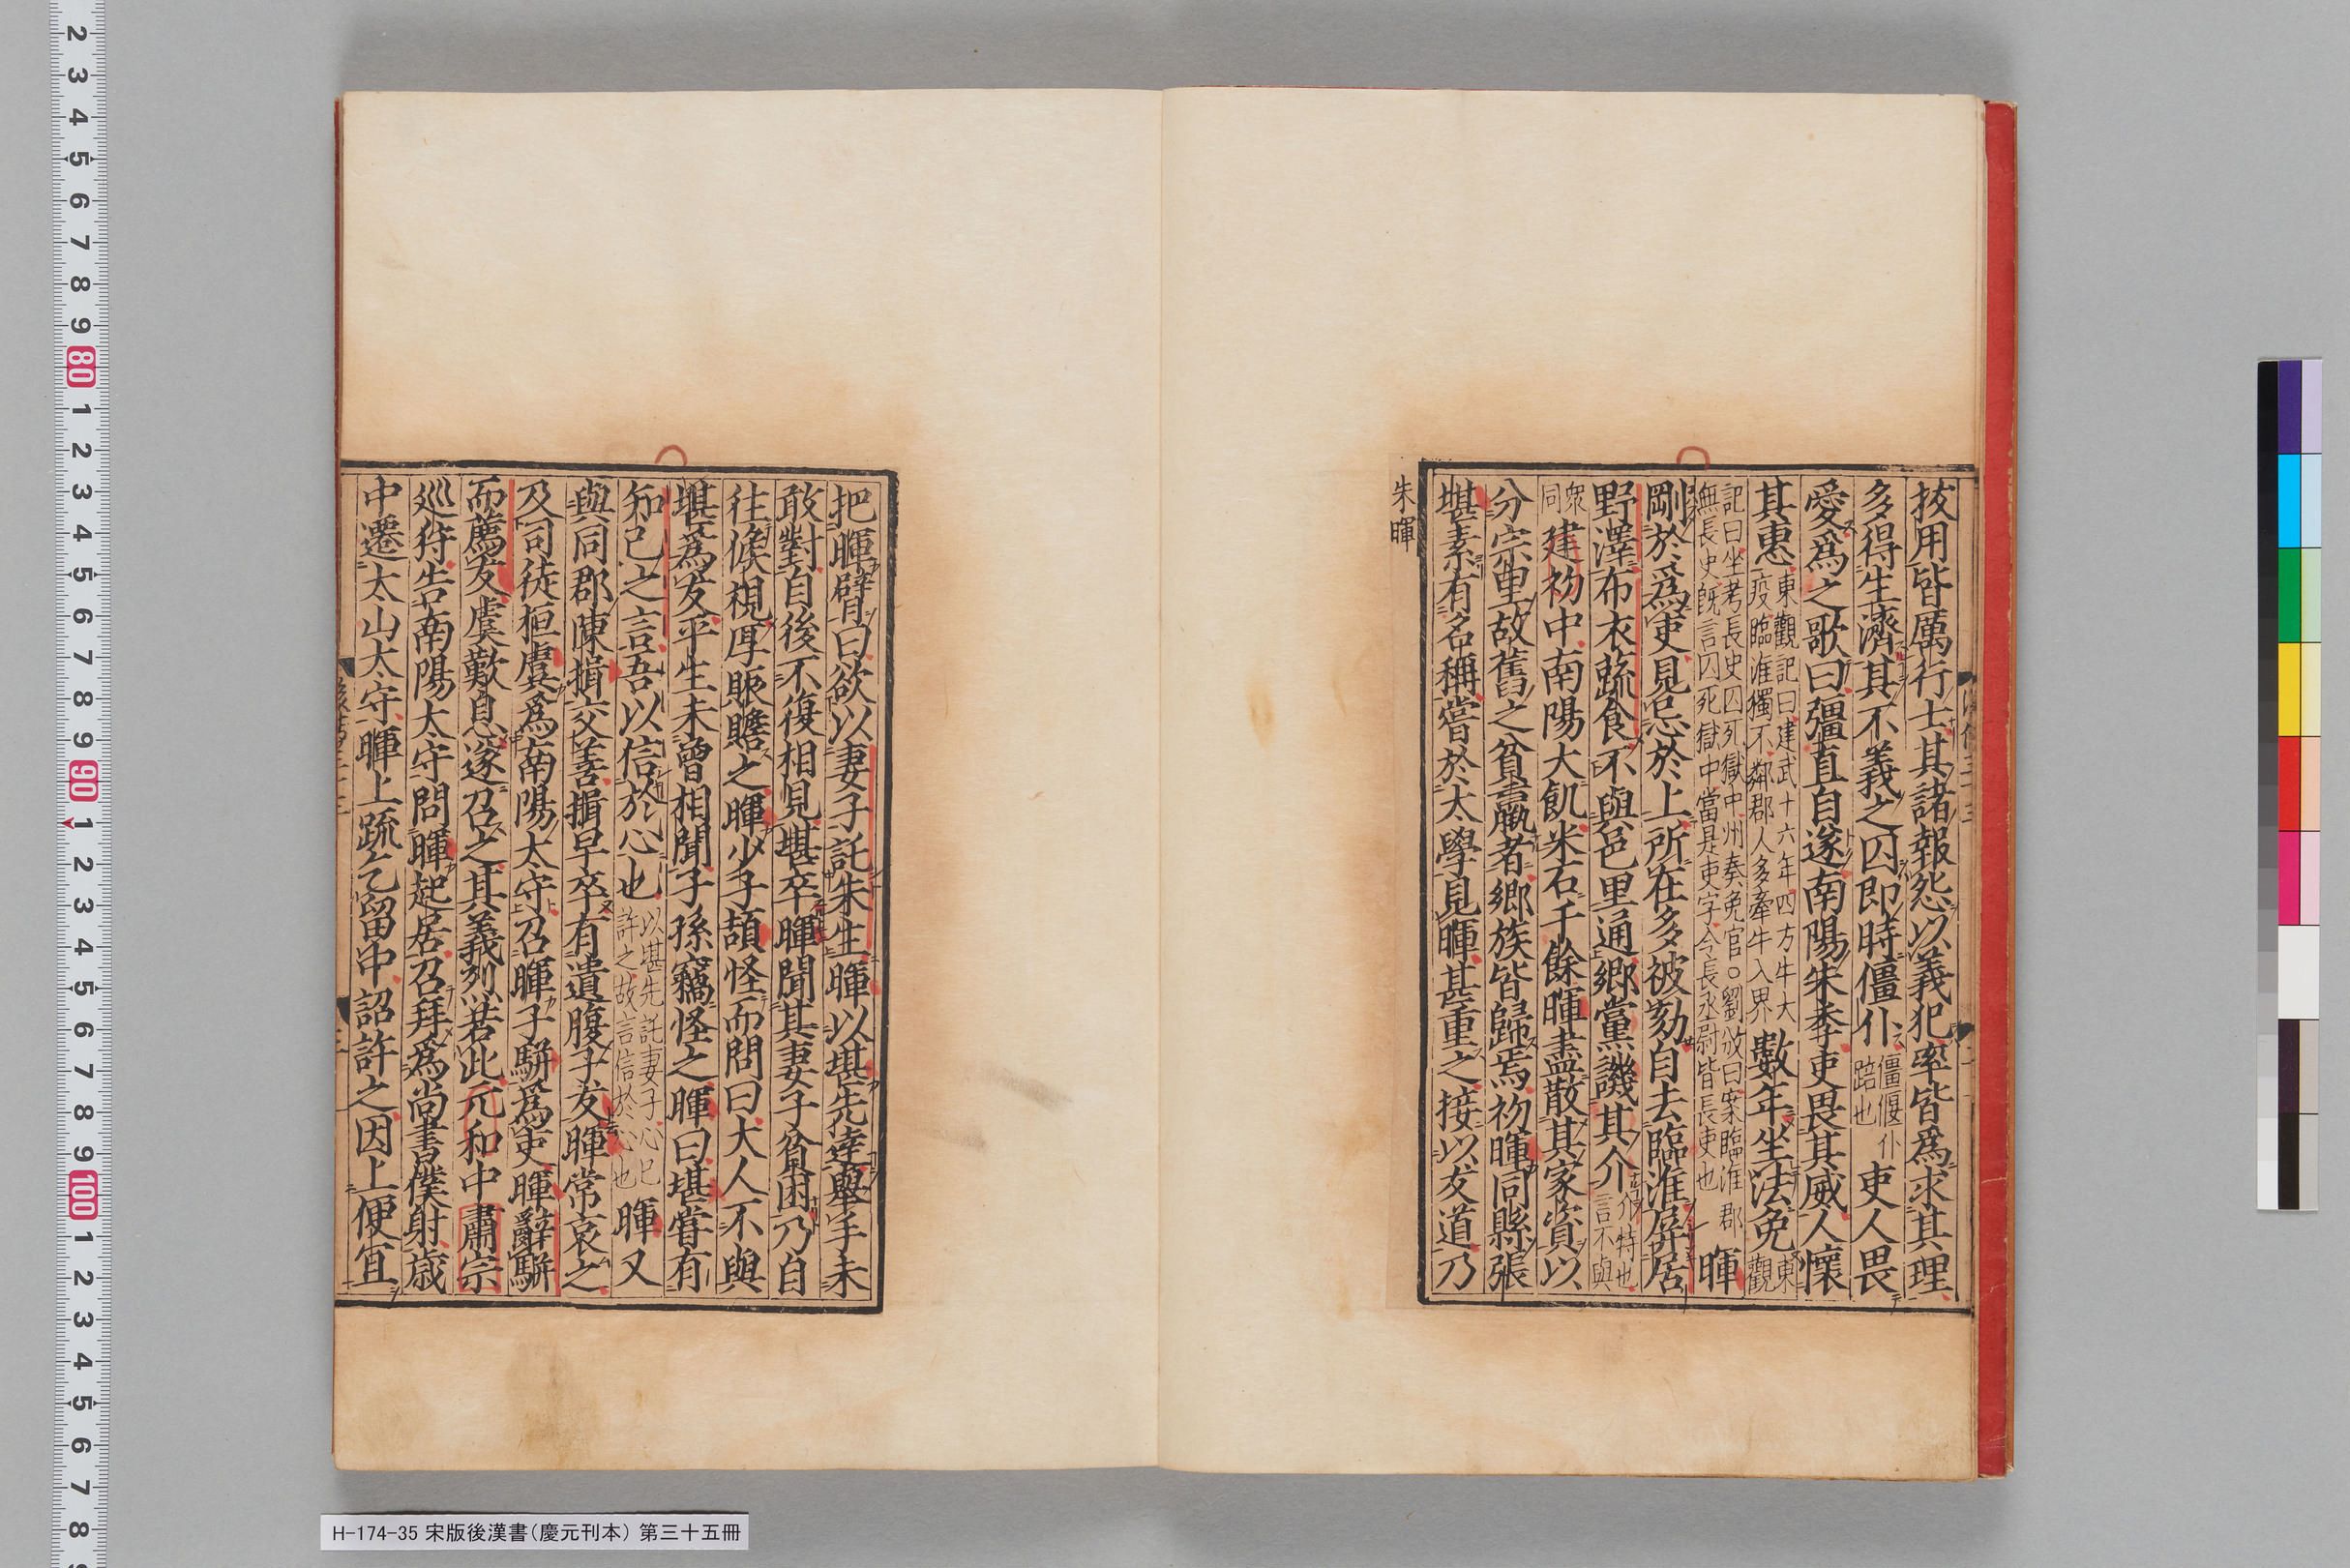 拔用皆厲行士其諸報怨以義犯率皆爲求其理
多得生濟其不義之囚即時僵仆僵偃仆踣也吏人畏
愛爲之歌曰彊直自遂南陽朱季吏畏其威人懷
其惠東觀記曰建武十六年四方牛大疫臨淮獨不鄰郡人多牽牛入界數年坐法免東觀
記曰坐考長史囚死獄中州奏免官○劉攽曰案臨淮郡無長史旣言囚死獄中當是吏字今長丞尉皆長吏也暉
剛於爲吏見忌於上所在多被劾自去臨淮屏居
野澤布衣蔬食不與邑里通鄉黨譏其介介特也言不與
衆同建初中南陽大飢米石千餘暉盡散其家資以
分宗里故舊之貧羸者鄉族皆歸焉初暉同縣張
堪素有名稱嘗於太學見暉甚重之接以友道乃
朱暉
把暉臂曰欲以妻子託朱生暉以堪先達舉手未
敢對自後不復相見堪卒暉聞其妻子貧困乃自
往候視厚賑贍之暉少子頡怪而問曰大人不與
堪爲友平生未曾相聞子孫竊怪之暉曰堪嘗有
知己之言吾以信於心也以堪先託妻子心已許之故言信於心也暉又
與同郡陳揖交善揖早卒有遺腹子友暉常哀之
及司徒桓虞爲南陽太守召暉子駢爲吏暉辭駢
而薦友虞歎息遂召之其義烈若此元和中肅宗
巡狩告南陽太守問暉起居召拜爲尚書僕射歳
中遷太山太守暉上疏乞留中詔許之因上便宜
H-174-35 宋版後漢書（慶元刊本） 第三十五冊